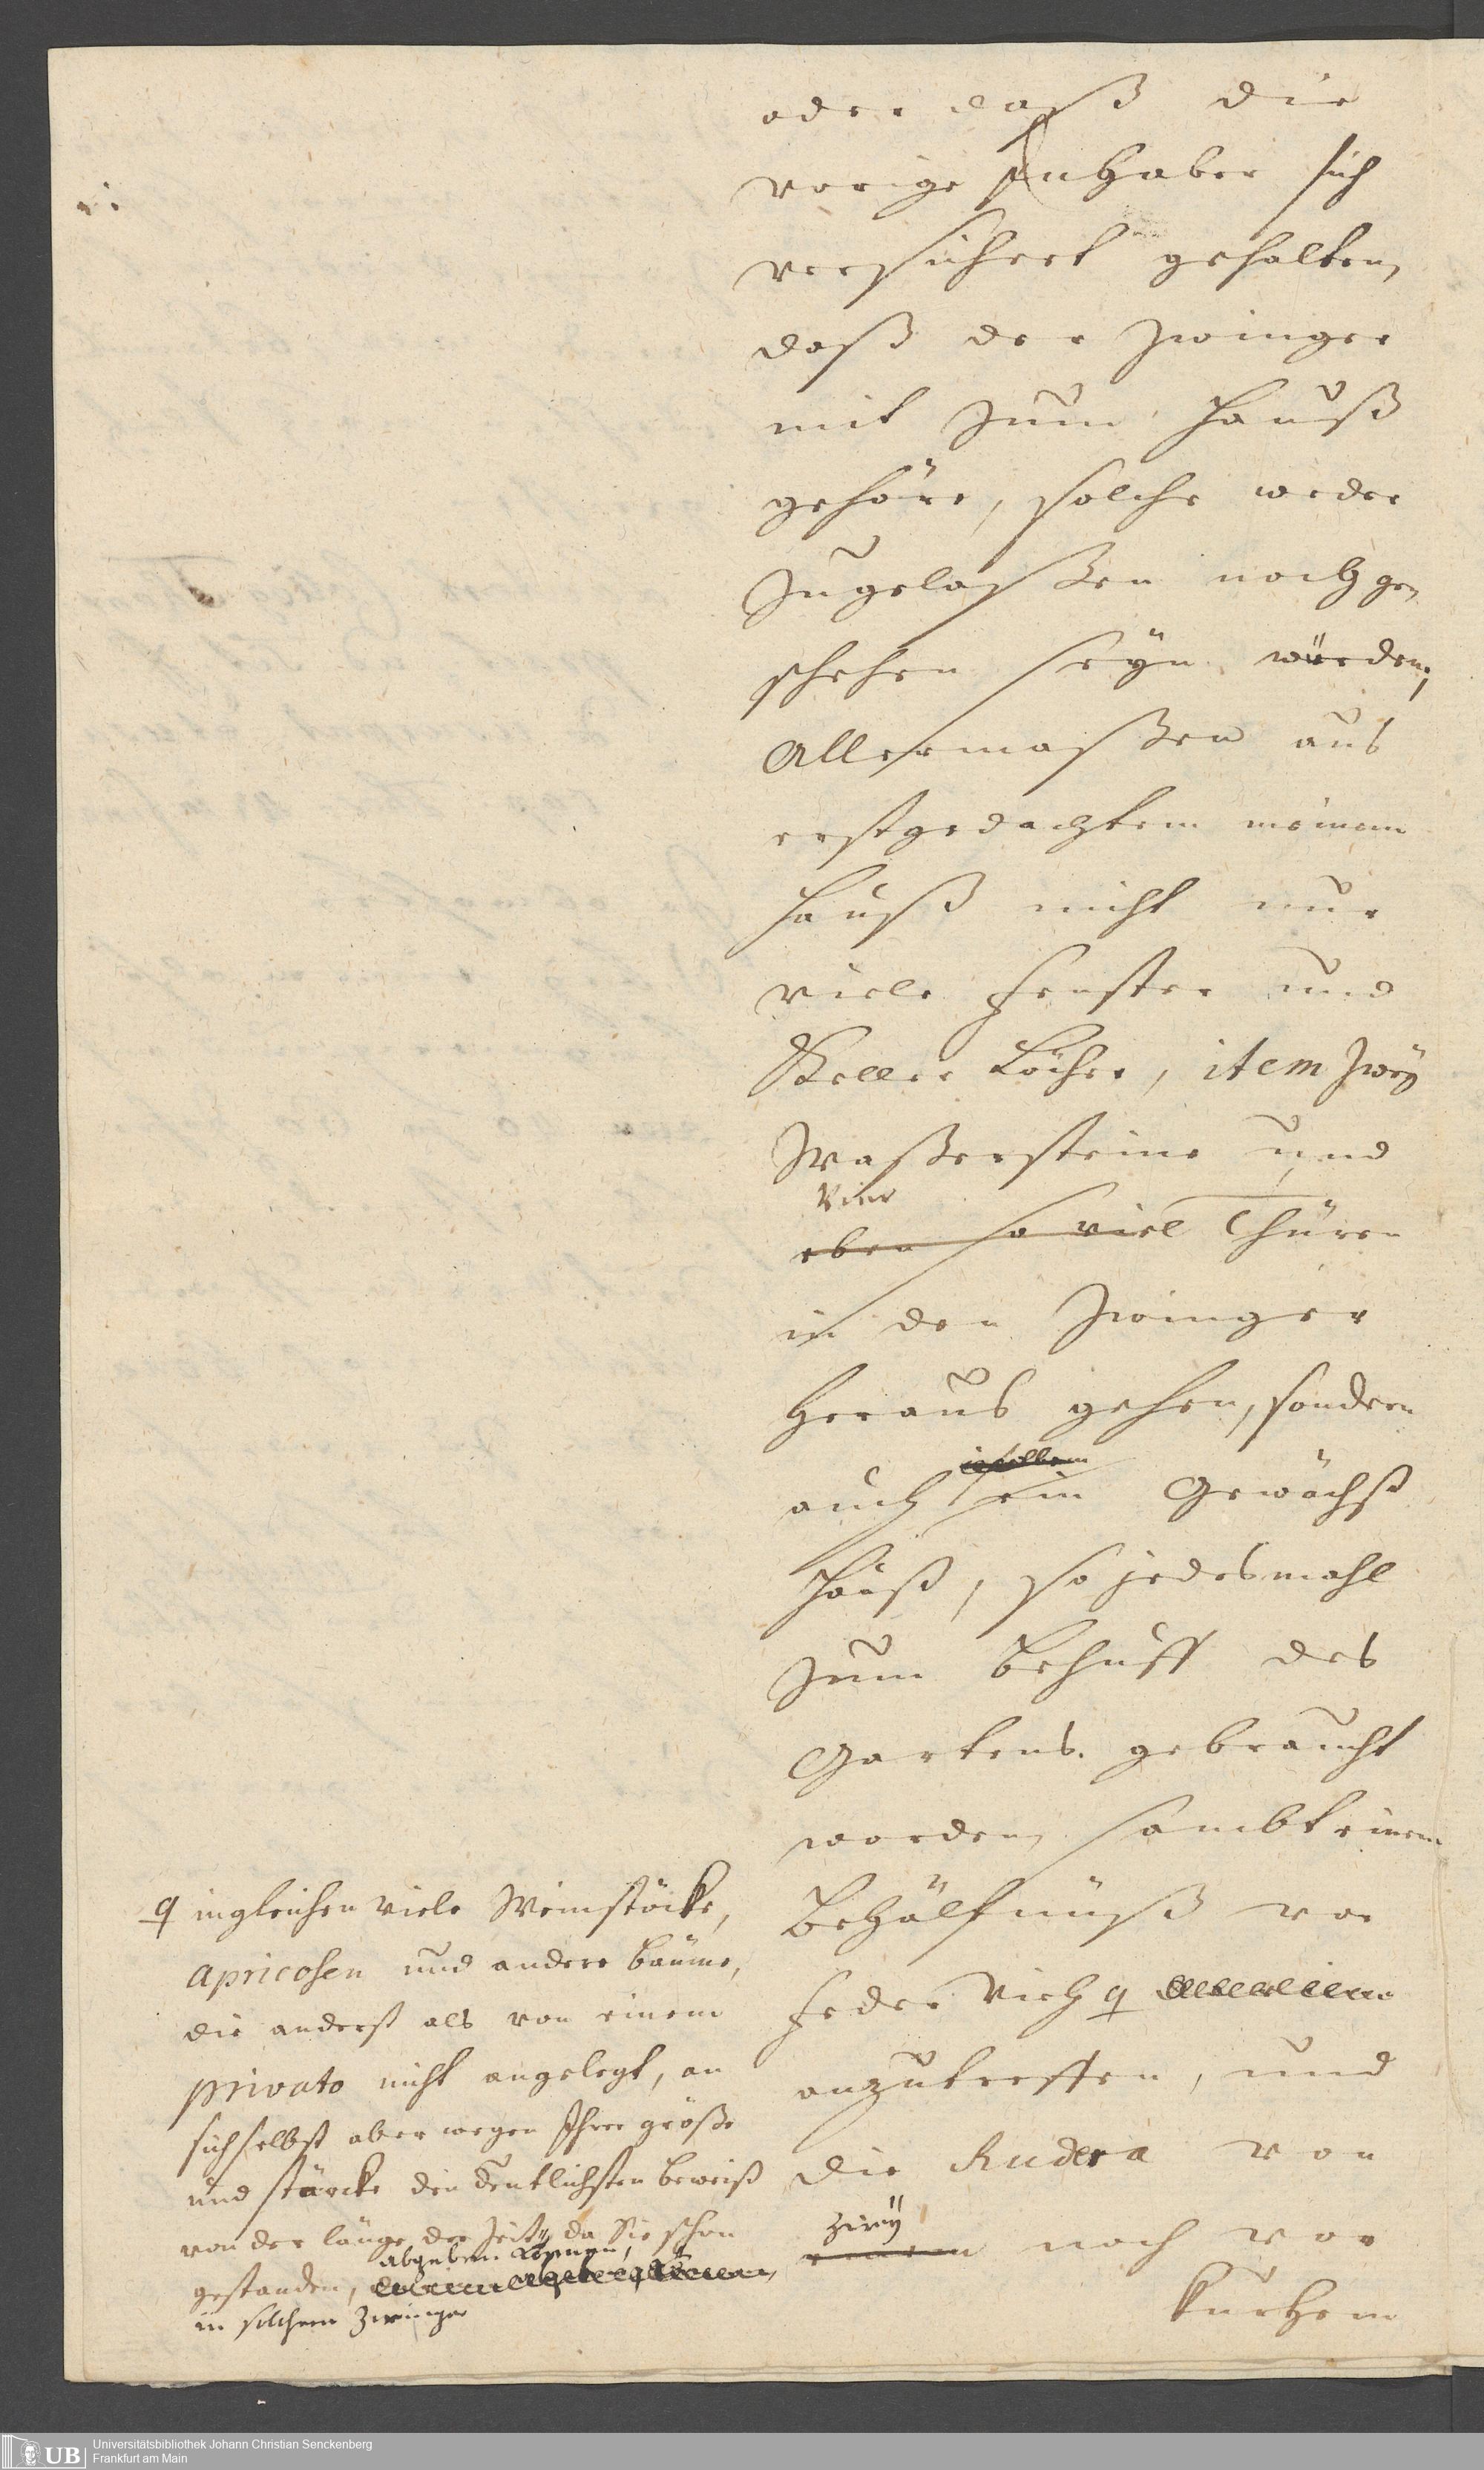 oder daß die
vorige Inhaber sich
versichert gehalten,
daß der Zwinger
mit zum Hauß
gehöre, solche weder
zugelaßen noch ge-
schehen seÿn würden;
Allermaßen aus
erstgedachtem meinem
Hauß nicht nur
viele Fenster und
Keller Löcher, item zweÿ
Waßersteine und
Vier
eben so viel Thüren
in den Zwinger
heraus gehen, sondern
auch ein Gewächß
Hauß, so jedesmahl
zum Behuff des
Gartens gebraucht
worden, sambt einem
Behältnüß vor
Feder Vieh q
anzutreffen, und
die Rudera von
zweÿ
einem noch vor
kurtzem
q ingleichen viele Weinstöcke,
Apricosen und andere bäume,
die anderst als von einem
privato nicht angelegt, an
sich selbst aber wegen Ihrer größe
und stärcke den deutlichsten beweiß
von der länge der Zeit, da Sie schon
abgeben können,
gestanden,
in solchem Zwinger
Universitätsbibliothek Johann Christian Senckenberg
Frankfurt am Main
UB